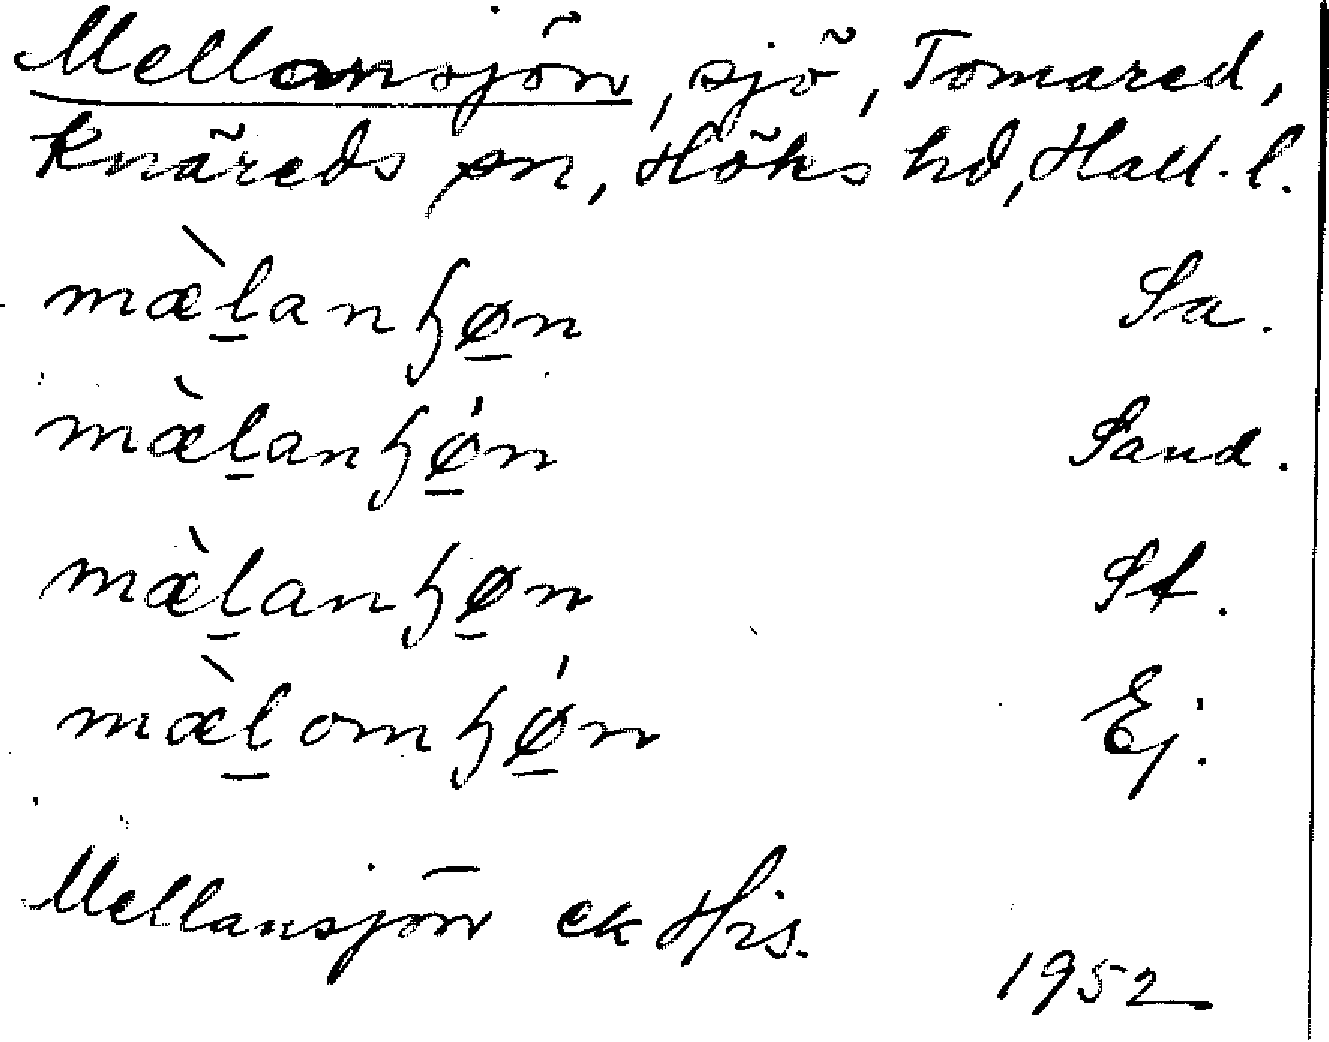 Mellansjön, sjö, Tomared,
Knäreds sn, Höks hd, Hall. l.
mæ̀l̠anɧø̠n Sa.
mæ̀l̠anɧǿ̠n Sand.
mæ̀l̠anɧø̠n St.
mæ̀l̠omɧǿ̠n Ej.
Mellansjön ek His.
1952